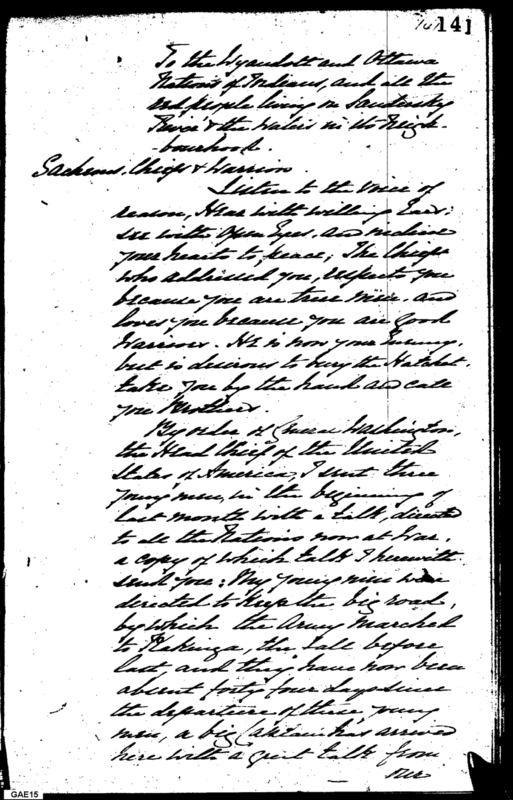 141
To the Wyandott and Ottawa
Nations of Indians, and all the
red people living on Sandusky
River & the Waters in its Neigh
-bourhood.
Sachems, Chiefs & Warriors.
Listen to the voice of
reason, Hear with willing Ears;
see with Open Eyes, and incline
your hearts to peace; The Chief
who addressed you, respects you
because you are true men. and
loves you because you are good
Warriors. He is now your Enemy,
but is desirous to bury the Hatchet.
take you by the hand and call
you Brothers.
By order of General Washington,
the Head Chief of the United
States of America, I sent three
young men, in the beginning of
last month with a talk, directed
to all the Nations now at War,
a copy of which talk I herewith
send you; My young men were
directed to keep the big road,
by which the Army marched
to Kakinga, the fall before
last, and they have now been
absent forty four days since
the departure of these young
men, a big Captain has arrived
here with a great talk from
our
GAE15